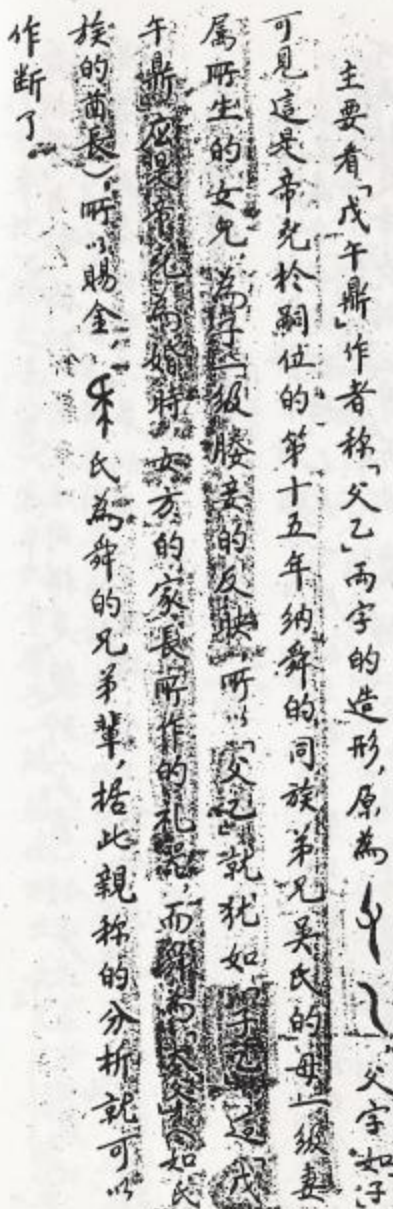 主要看「戊午鼎」作者称「父乙」两字的造形，原為 父字如「子」
可見這是帝堯於嗣位的第十五年纳舜的同族弟兄吴氏的母一級妻
属所生的女兒，為子一级媵妾的反映，所以「父乙」就犹如「子乙」這「戊
午鼎」应是帝堯為婚時女方的家長所作的礼器，而稱為「大父」（如氏
族的酋長），所以賜金， 氏為舜的兄弟輩，据此親称的分析就可以
作断了。